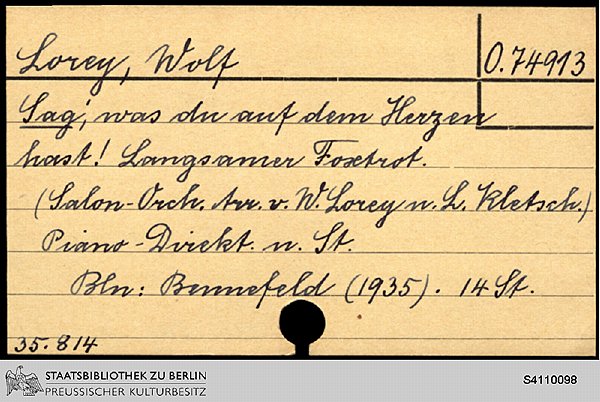 Lorey, Wolf
O.74913
Sag', was du auf dem Herzen
hast! Langsamer Foxtrot.
(Salon-Orch. Arr. v. W. Lorey u. L. Kletsch.)
Piano-Direkt. u. St.
Bln: Bennefeld (1935). 14 St.
35.814
STAATSBIBLIOTHEK ZU BERLIN
PREUSSISCHER KULTURBESITZ
S4110098